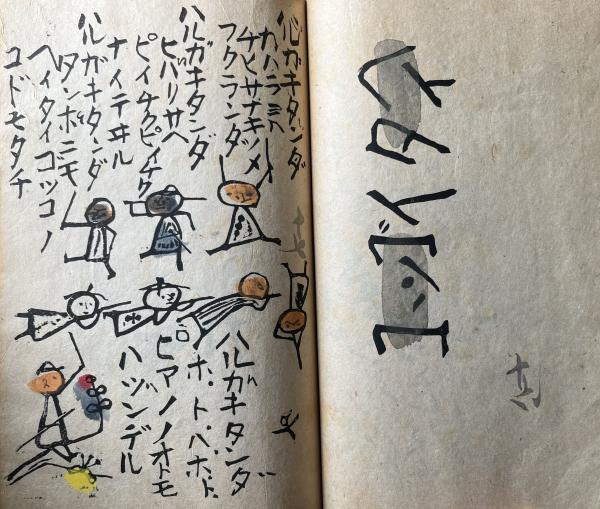 ヘイタイゴッコ
ハルガキタンダ
カハラニハ
チヒサナキノメ
フクランダ
ハルガキタンダ
ヒバリサヘ
ピイチクピイチク
ナイテヰル
ハルガキタンダ
タンボニモ
ヘイタイゴッコノ
コドモタチ
ハルガキタンダ
ピアノノオトモ
ハヅンデル